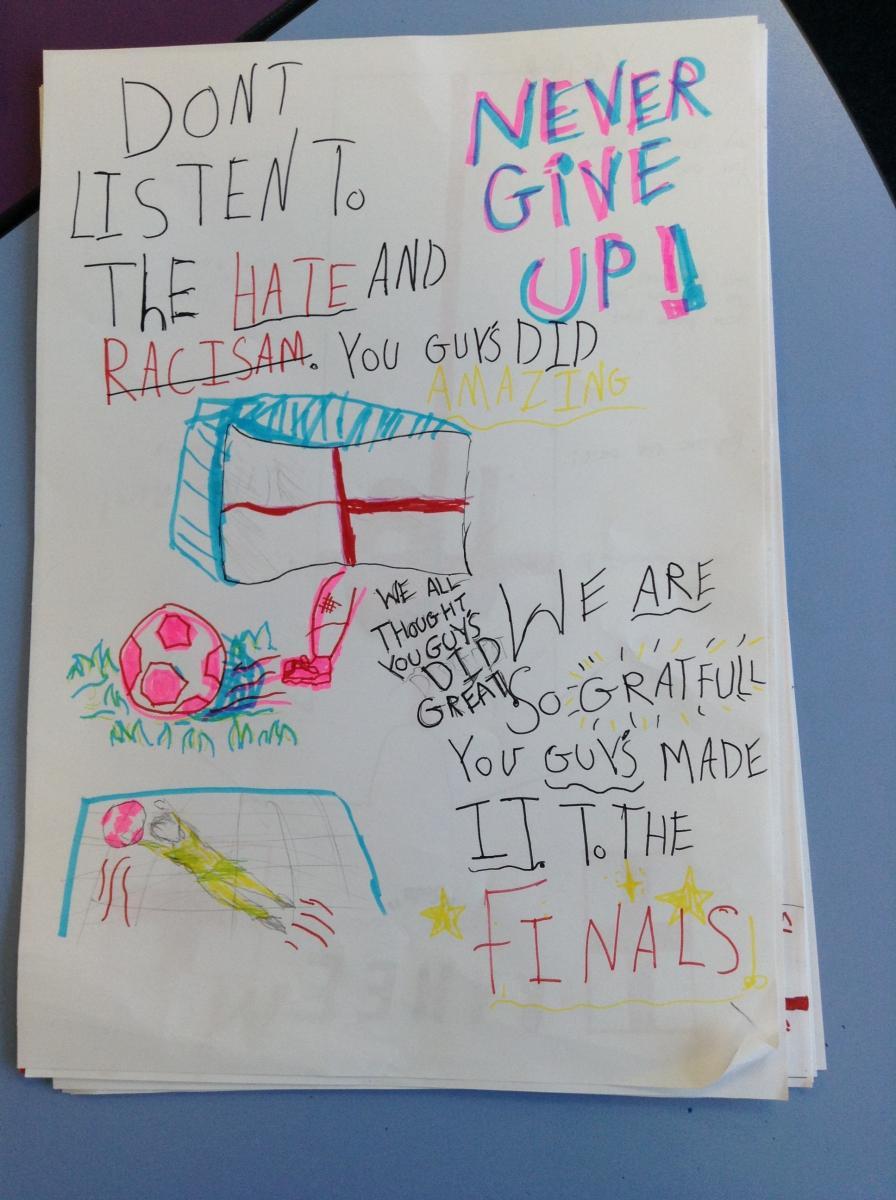 DONT
LISTEN To
ThE HATE AND
RACISAM. YOU GUY'S DID
AMAZING
NEVER
GiVE
UP!!
WE ALL
THOUGHT
YOU GUY'S
DID
GREAT!
WE ARE
So GRATFULL
YOU GUY'S MADE
IT. To THE
FINALS!